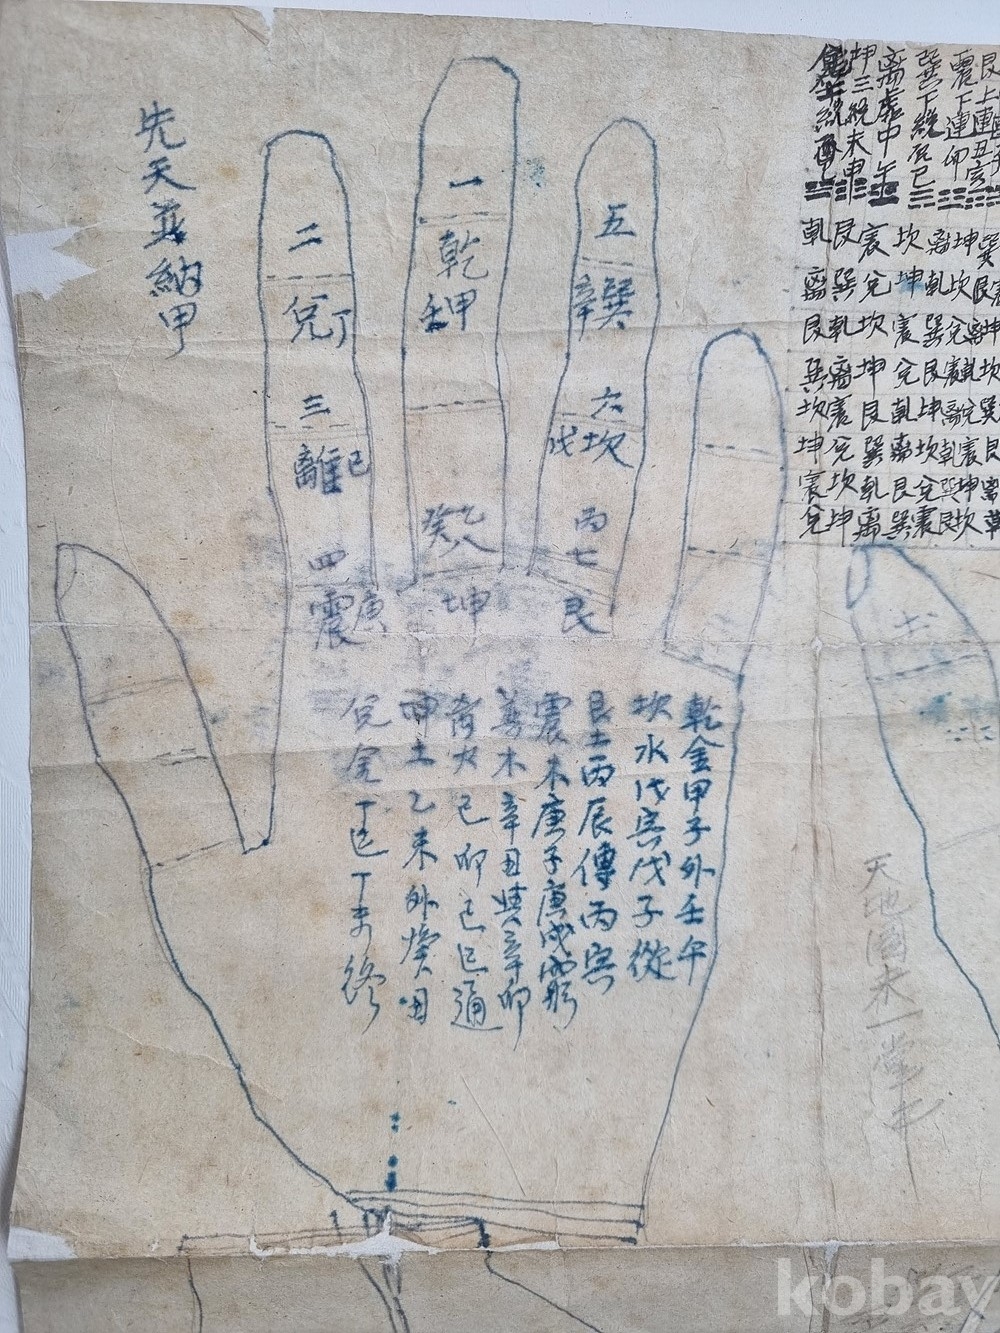 先天並納甲
一
乾
壬甲
二
兌丁
三
離己
四
震庚
五
巽辛
六
坎戊
丙七
艮
乙癸八
坤
乾金甲子外壬午
坎水戊寅戊子從
艮土丙辰傳丙寅
震木庚子庚戌
木辛丑與辛卯
火己卯己巳通
坤土乙未外癸丑
兌金丁巳丁未終
坤三絶未申
离虛中午
巽下絶辰巳
震下連卯
艮上連丑
乾艮震坎离坤巽
离巽兌坤乾坎艮
艮乾坎震巽兌离坤
巽离坤兌艮震乾坎
坎震艮乾坤离兌巽
坤兌巽离坎乾震艮
震坎乾艮兌巽坤离
兌坤离巽震艮坎乾
天地
kobay